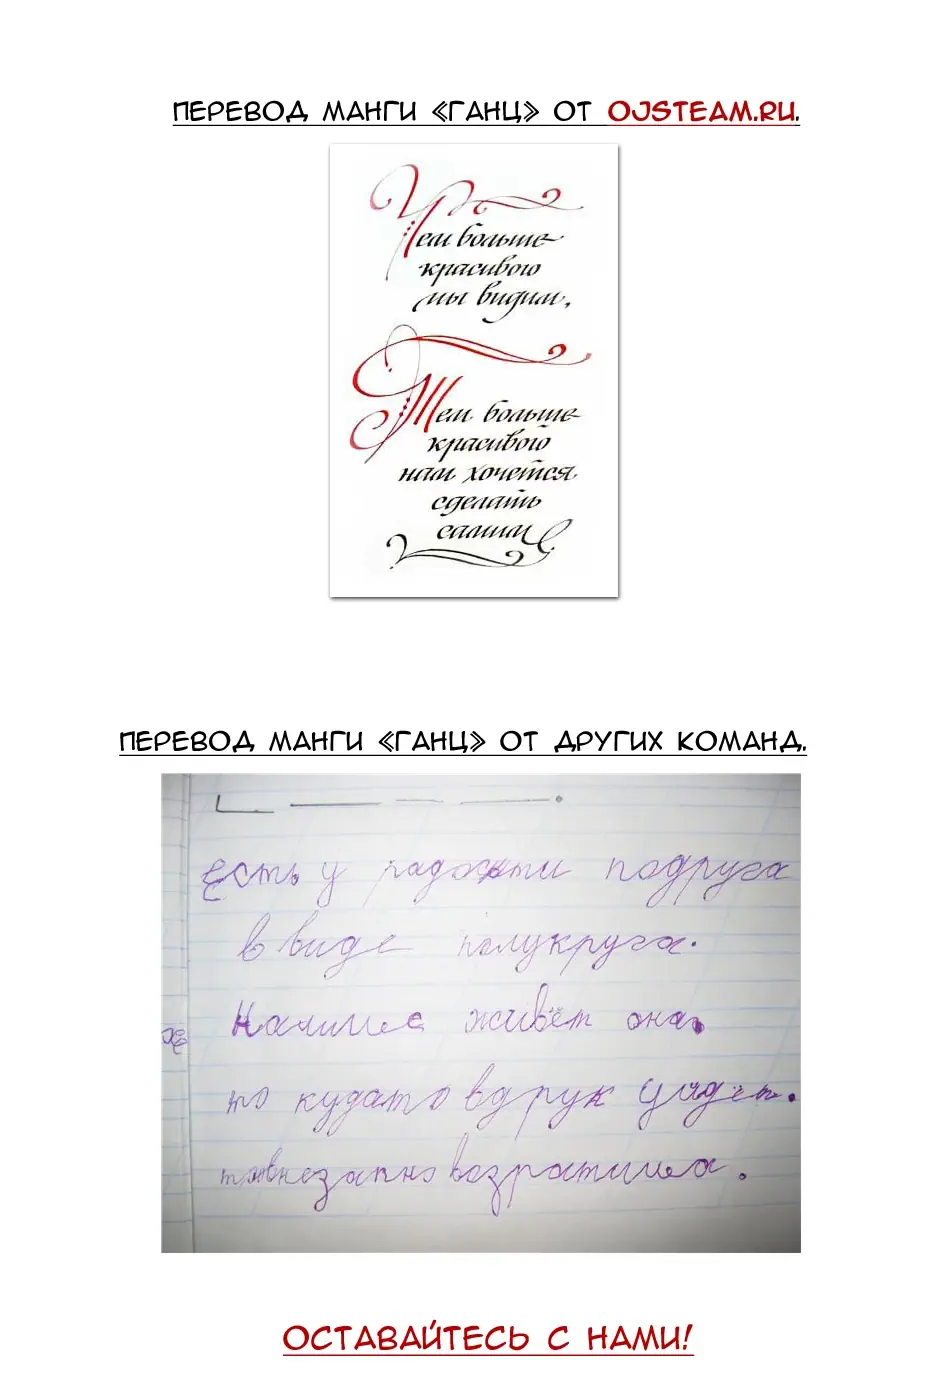 ПЕРЕВОД МАНГИ «ГАНЦ» ОТ OJSTEAM.RU.
Чем больше
красивого
мы видим,
Тем больше
красивого
нам хочется
сделать
самим
ПЕРЕВОД МАНГИ «ГАНЦ» ОТ ДРУГИХ КОМАНД.
Есть у радости подруга
в виде полукруга.
На лице живёт она.
то кудато вдрук уйдёт.
то внезапно возратица.
ОСТАВАЙТЕСЬ С НАМИ!